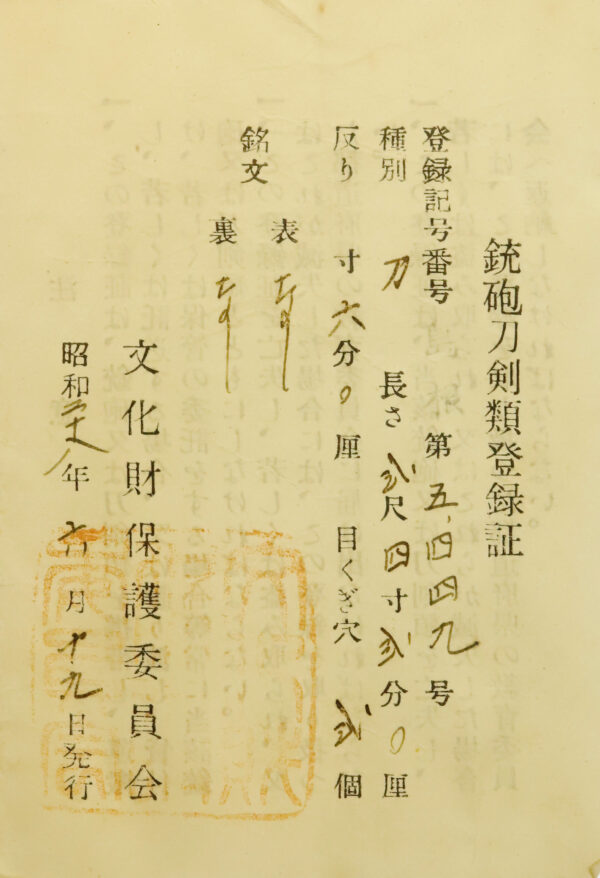 銃砲刀剣類登録証
登録記号番号 第五四四九号
種別 刀 長さ 弐尺四寸弐分〇厘
反り 寸六分〇厘 目くぎ穴 弐個
銘文
表 なし
裏 なし
文化財保護委員会
昭和年月十九日発行